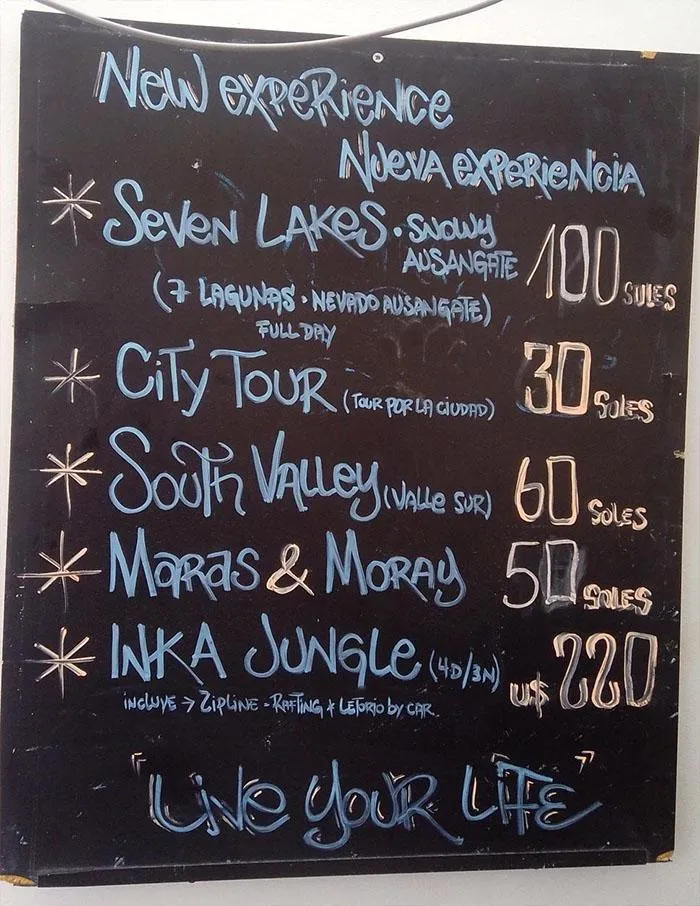 New experience
Nueva experiencia
* Seven Lakes · Snowy Ausangate 100 Soles
(7 Lagunas · Nevado Ausangate)
Full Day
* City Tour (Tour por la ciudad) 30 Soles
* South Valley (Valle Sur) 60 Soles
* Maras & Moray 50 Soles
* Inka Jungle (4D/3N) U$ 220
incluye → Zipline - Rafting * Letorio by car
"Live your life"